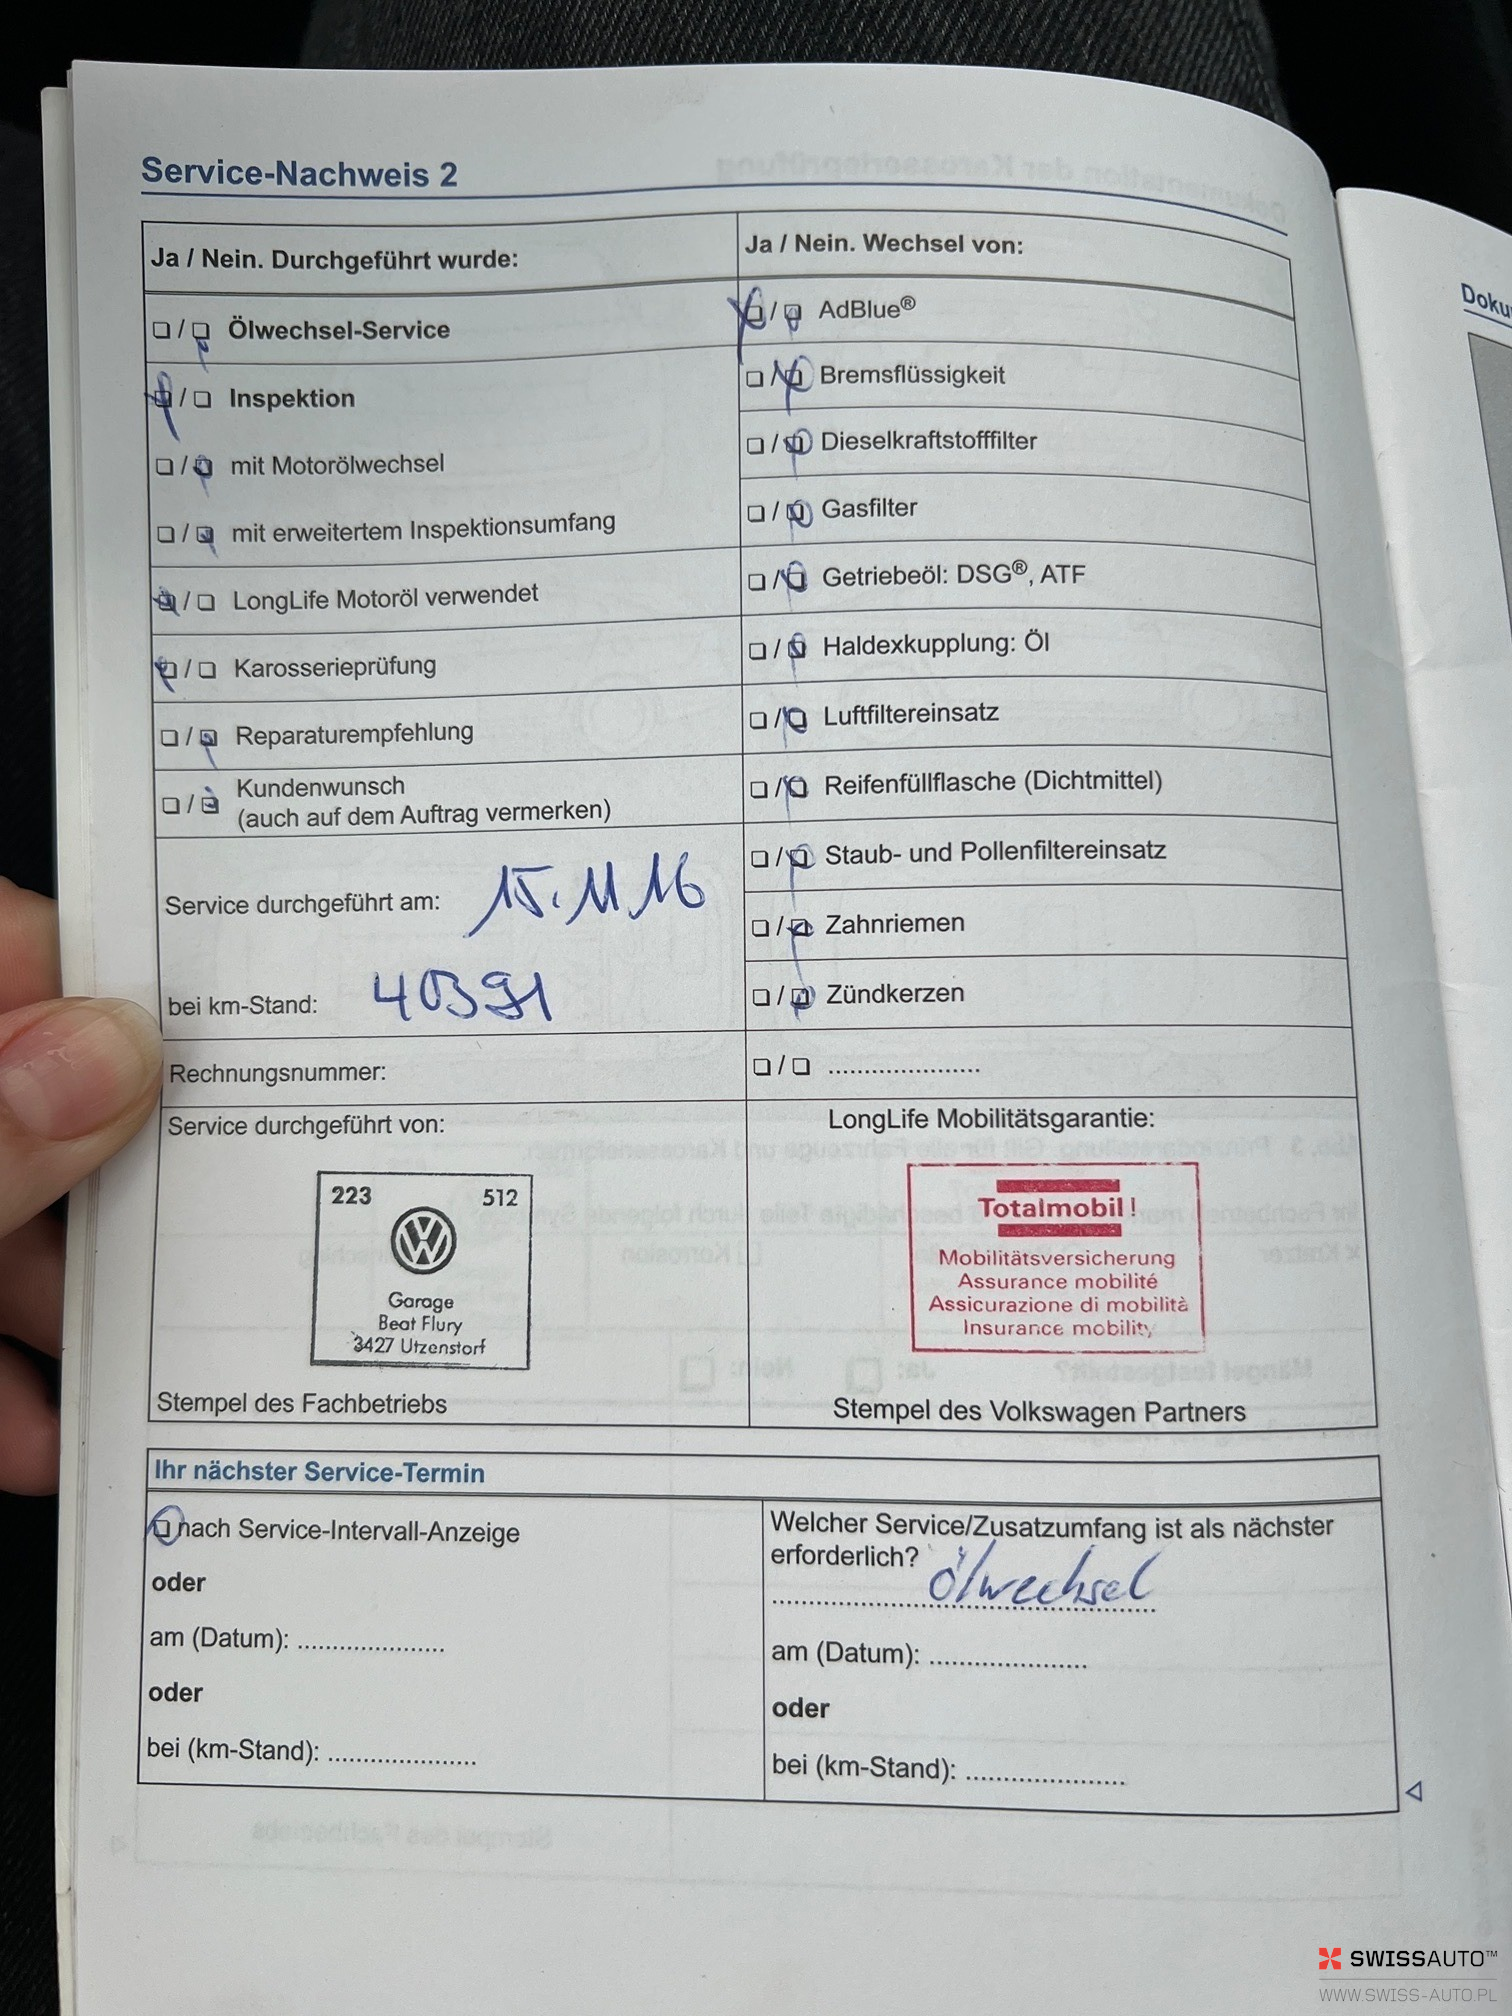 Service-Nachweis 2
Ja / Nein. Durchgeführt wurde:
Ölwechsel-Service
Inspektion
mit Motorölwechsel
mit erweitertem Inspektionsumfang
LongLife Motoröl verwendet
Karosserieprüfung
Reparaturempfehlung
Kundenwunsch
(auch auf dem Auftrag vermerken)
Service durchgeführt am: 15.11.16
bei km-Stand: 40391
Rechnungsnummer:
Ja / Nein. Wechsel von:
AdBlue®
Bremsflüssigkeit
Dieselkraftstofffilter
Gasfilter
Getriebeöl: DSG®, ATF
Haldexkupplung: Öl
Luftfiltereinsatz
Reifenfüllflasche (Dichtmittel)
Staub- und Pollenfiltereinsatz
Zahnriemen
Zündkerzen
....................
Service durchgeführt von:
223 512
Garage
Beat Flury
3427 Utzenstorf
Stempel des Fachbetriebs
LongLife Mobilitätsgarantie:
Totalmobil!
Mobilitätsversicherung
Assurance mobilité
Assicurazione di mobilità
Insurance mobility
Stempel des Volkswagen Partners
Ihr nächster Service-Termin
nach Service-Intervall-Anzeige
oder
am (Datum): ....................
oder
bei (km-Stand): ....................
Welcher Service/Zusatzumfang ist als nächster
erforderlich?
Ölwechsel
am (Datum): ....................
oder
bei (km-Stand): ....................
Doku
SWISSAUTO™
WWW.SWISS-AUTO.PL